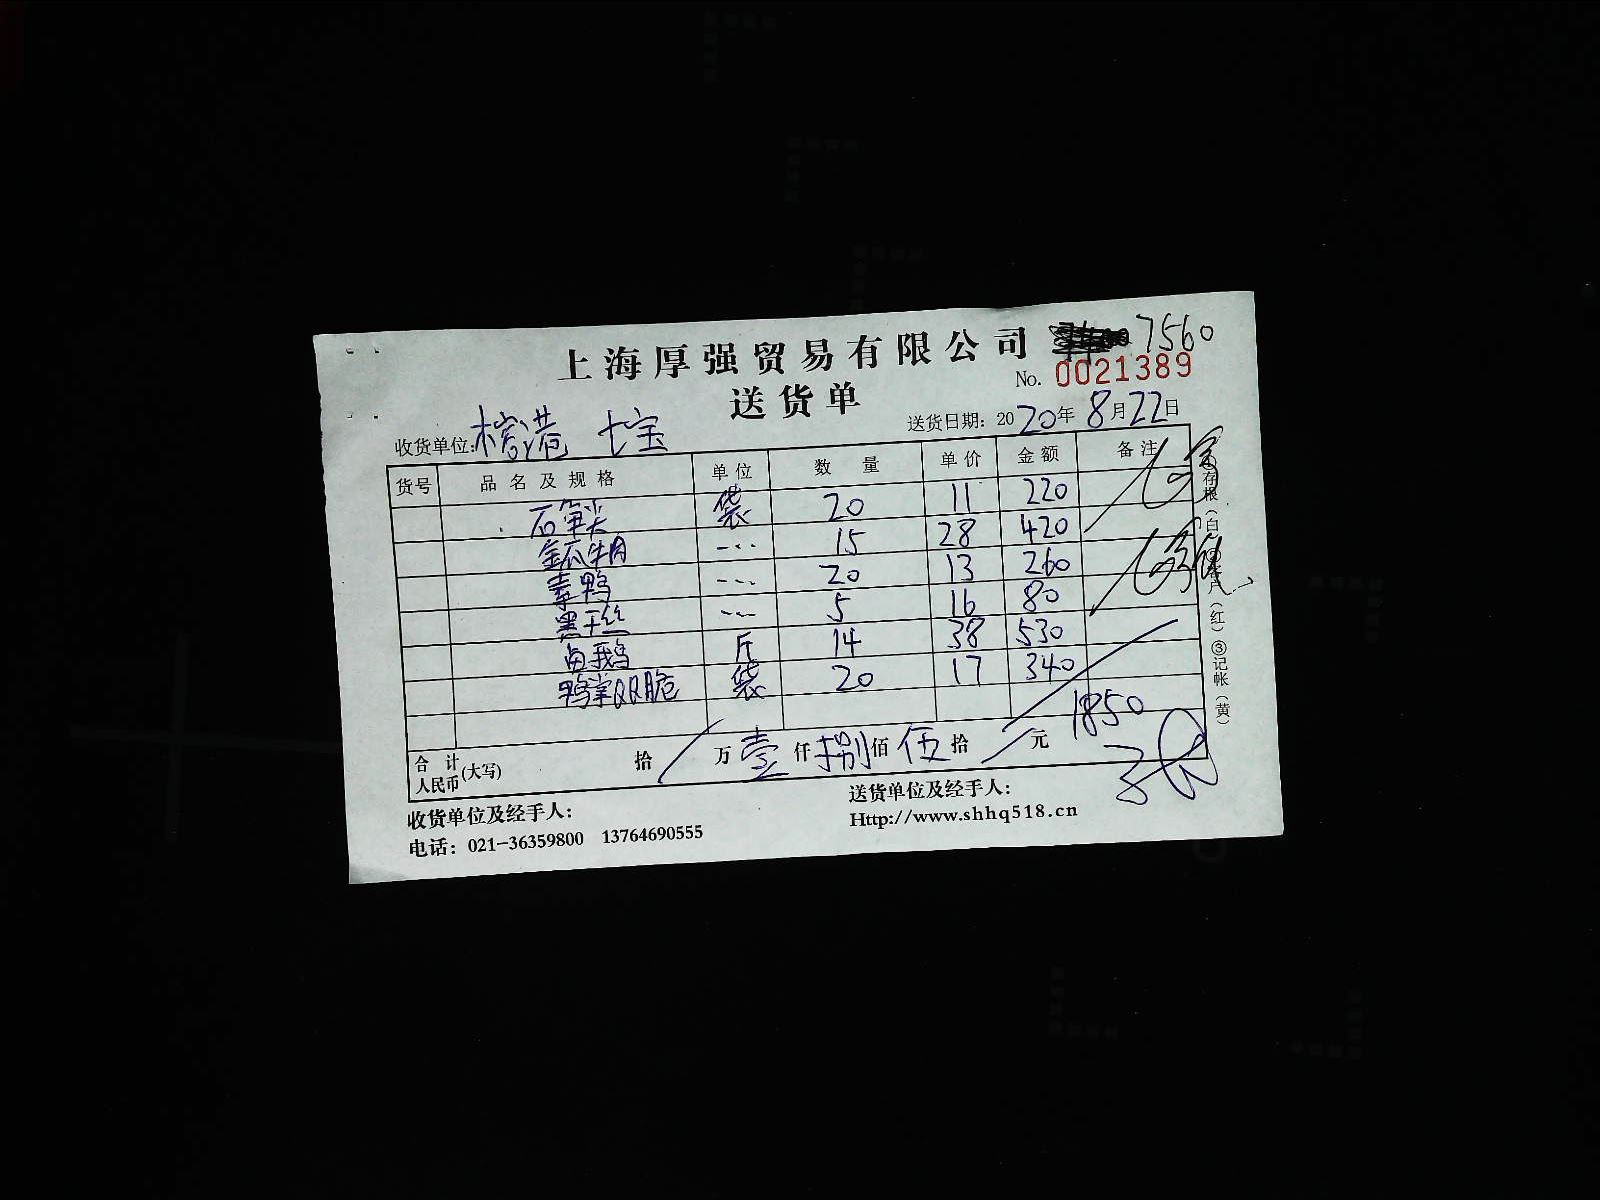 上海厚强贸易有限公司 7560
No. 0021389
送货单
送货日期: 2020年8月22日
收货单位: 榕港 七宝
货号 品名及规格 单位 数量 单价 金额 备注
石笋尖 袋 20 11 220
金瓜牛肉 --- 15 28 420
素鸭 --- 20 13 260
黑干丝 --- 5 16 80
卤鹅 斤 14 38 530
鸭掌QQ脆 袋 20 17 340
1850
合计人民币(大写) 拾 万 壹 仟 捌 佰 伍 拾 元
收货单位及经手人:
送货单位及经手人:
电话: 021-36359800 13764690555
Http://www.shhq518.cn
①存根(白)②客户(红)③记帐(黄)